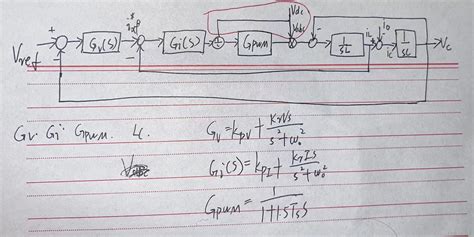 Vref + − Gv(S) i*ref − Gi(S) Gpwm Vdc Vdc 1/SL iL io ic 1/SC Vc
Gv. Gi. Gpwm. Gv = kpv + KrvS/(S²+ω₀²)
Gi(S) = kpI + KrIS/(S²+ω₀²)
Gpwm = 1/(1+1.5TsS)